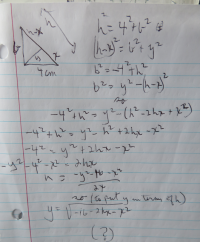 h
h-x
b
y
h
x
4cm
h² = 4² + b²
(h-x)² = b² + y²
b² = -4² + h²
b² = y² - (h-x)²
-4² + h² = y² - (h² - 2hx + x²)
-4² + h² = y² - h² + 2hx - x²
-4² = y² + 2hx - x²
-y² - 4² - x² = 2hx
h = -y² - 16 - x²
2x
(input y in terms of h)
y = √-16 - 2hx - x²
(?)